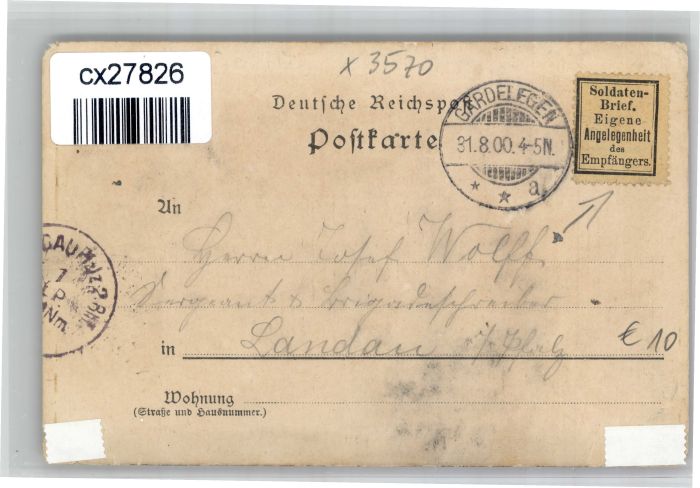 cx27826
x 3570
Deutsche Reichspost
Postkarte
GARDELEGEN
31.8.00. 4-5N.
a
Soldaten-
Brief.
Eigene
Angelegenheit
des
Empfängers.
An
Herrn Josef Wolff
Sergeant & Brigadeschreiber
in Landau i/Pfalz
€ 10
Wohnung
(Straße und Hausnummer.)